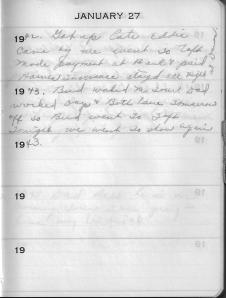 JANUARY 27
19 Got up Late Eddie
Came by me went to Taft
Made payment at Bank & paid
Homes Insurance stayed all night
1943. Bud worked
worked Days & Both have Tomorrow
off so Bud went To Taft
Tonight we went to show again
1943.
19
19